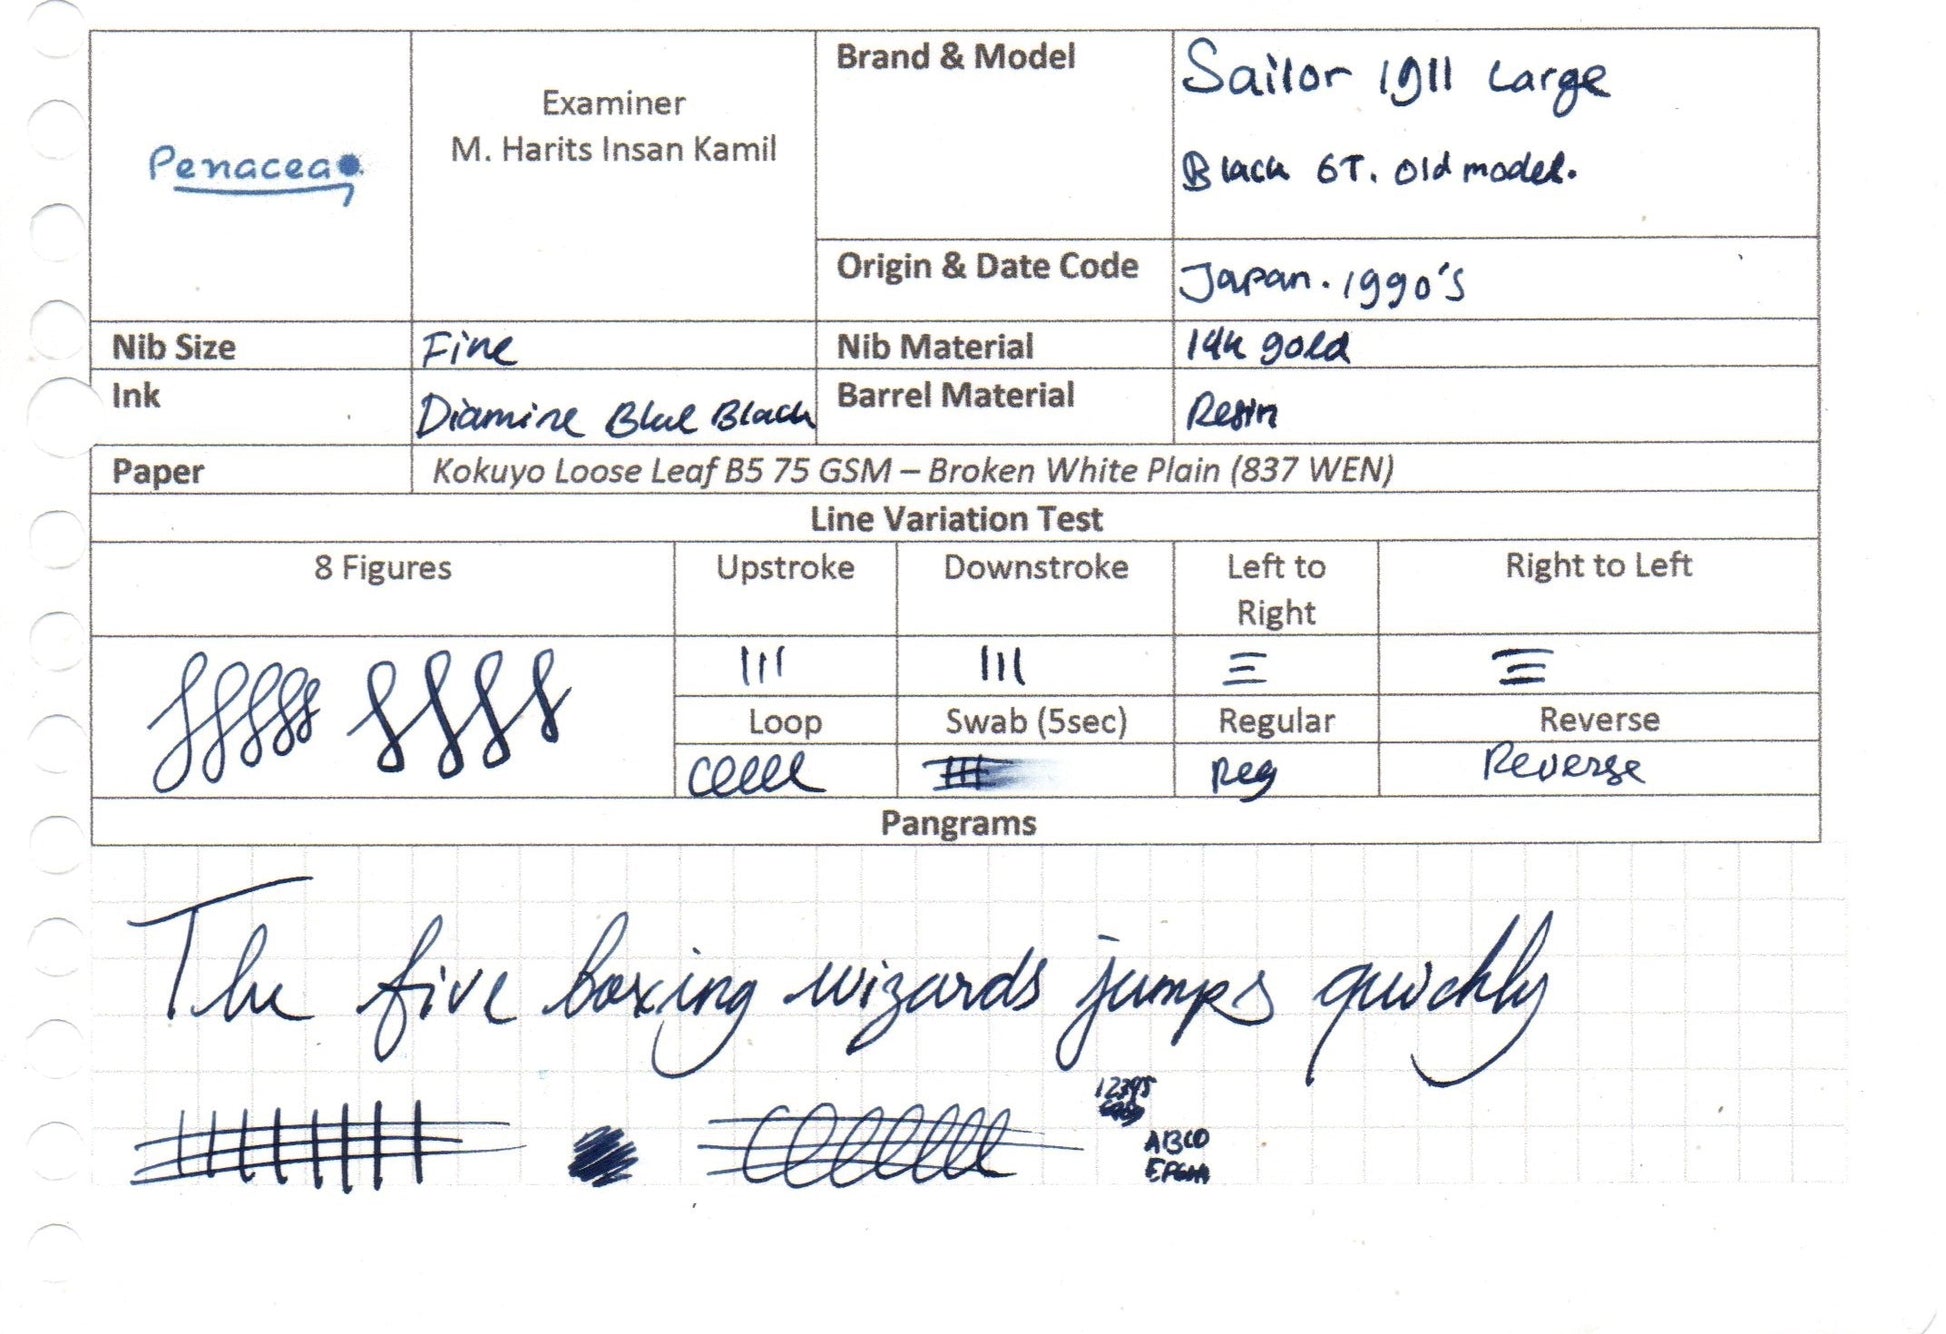 Penacea
Examiner
M. Harits Insan Kamil
Brand & Model
Sailor 1911 Large
Black GT. Old model.
Origin & Date Code
Japan. 1990's
Nib Size
Fine
Nib Material
14k gold
Ink
Diamine Blue Black
Barrel Material
Resin
Paper
Kokuyo Loose Leaf B5 75 GSM – Broken White Plain (837 WEN)
Line Variation Test
8 Figures
Upstroke
Downstroke
Left to
Right
Right to Left
Loop
Swab (5sec)
Regular
Reverse
Reg
Reverse
Pangrams
The five boxing wizards jumps quickly
12345
ABCD